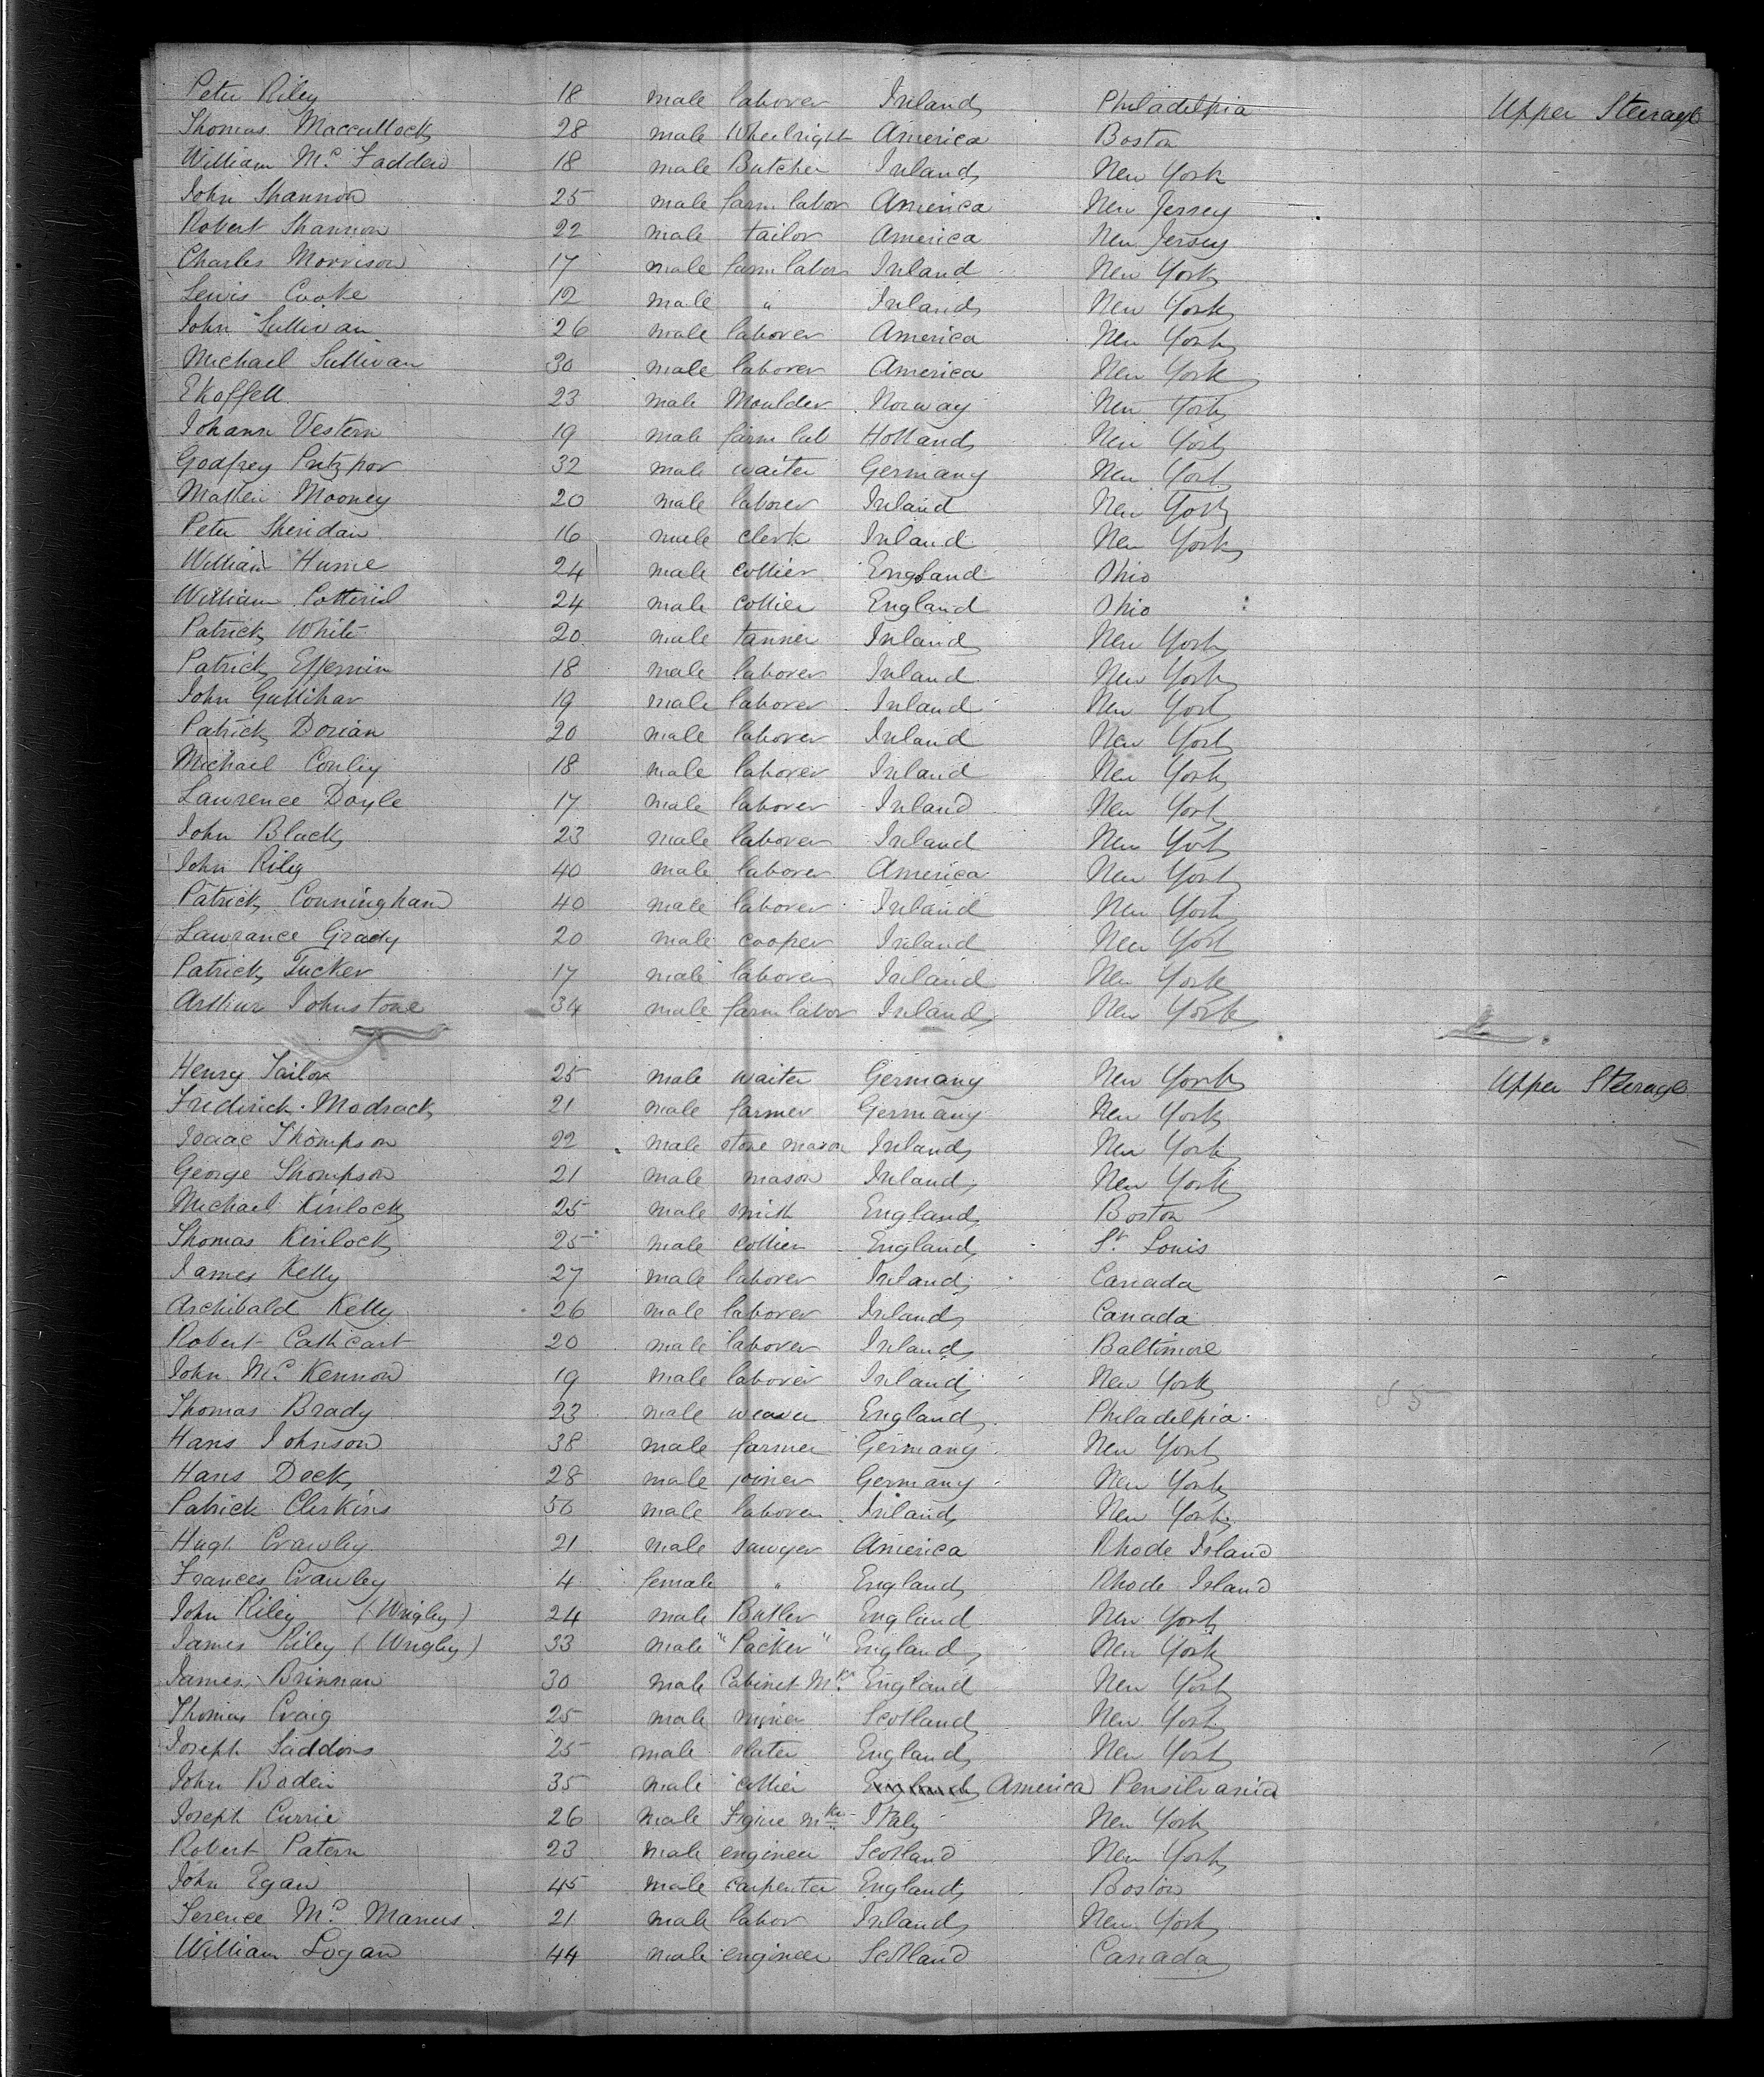 Peter Riley 18 male laborer Ireland Philadelpia Upper Steerage
Thomas Maccullock 28 male Wheelright America Boston
William Mc Fadden 18 male Butcher Ireland New York
John Shannon 25 male farm labor America New Jersey
Robert Shannon 22 male tailor America New Jersey
Charles Morrison 17 male farm labor Ireland New York
Lewis Cooke 12 male " Ireland New York
John Sullivan 26 male laborer America New York
Michael Sullivan 30 male laborer America New York
Ekoffell 23 male Moulder Norway New York
Johann Vestern 19 male farm lab Holland New York
Godfrey 32 male waiter Germany New York
Mooney 20 male laborer Ireland New York
Peter Sheridan 16 male clerk Ireland New York
William Hume 24 male collier England Ohio
William Cotteril 24 male collier England Ohio
Patrick White 20 male tanner Ireland New York
Patrick 18 male laborer Ireland New York
John Gullihar 19 male laborer Ireland New York
Patrick Dorian 20 male laborer Ireland New York
Michael Conley 18 male laborer Ireland New York
Lawrence Doyle 17 male laborer Ireland New York
John Black 23 male laborer Ireland New York
John Riley 40 male laborer America New York
Patrick Conningham 40 male laborer Ireland New York
Lawrance Grady 20 male cooper Ireland New York
Patrick Tucker 17 male laborer Ireland New York
Arthur Johnstone 34 male farm labor Ireland New York
Henry Tailor 25 male waiter Germany New York Upper Steerage
Frederick Modrack 21 male farmer Germany New York
Isaac Thompson 22 male stone mason Ireland New York
George Thompson 21 male mason Ireland New York
Michael Kinlock 25 male smith England Boston
Thomas Kinlock 25 male collier England St. Louis
James Kelly 27 male laborer Ireland Canada
Archibald Kelly 26 male laborer Ireland Canada
Robert Cathcart 20 male laborer Ireland Baltimore
John Mc Kennon 19 male laborer Ireland New York
Thomas Brady 23 male weaver England Philadelpia
Hans Johnson 38 male farmer Germany New York
Hans Deck 28 male joiner Germany New York
Patrick Clerkins 50 male laborer Ireland New York
Hugh Crawley 21 male sawyer America Rhode Island
Frances Crawley 4 female " England Rhode Island
John Riley (Wrigley) 24 male Butler England New York
James Riley (Wrigley) 33 male "Packer" England New York
James Brinnan 30 male Cabinet Mkr England New York
Thomas Craig 25 male miner Scotland New York
Joseph Saddons 25 male slater England New York
John Boden 35 male collier England America Pensilvania
Joseph Currie 26 male Figure mkr Italy New York
Robert Patern 23 male engineer Scotland New York
John Egan 45 male carpenter England Boston
Terence Mc Manus 21 male labor Ireland New York
William Logan 44 male engineer Scotland Canada